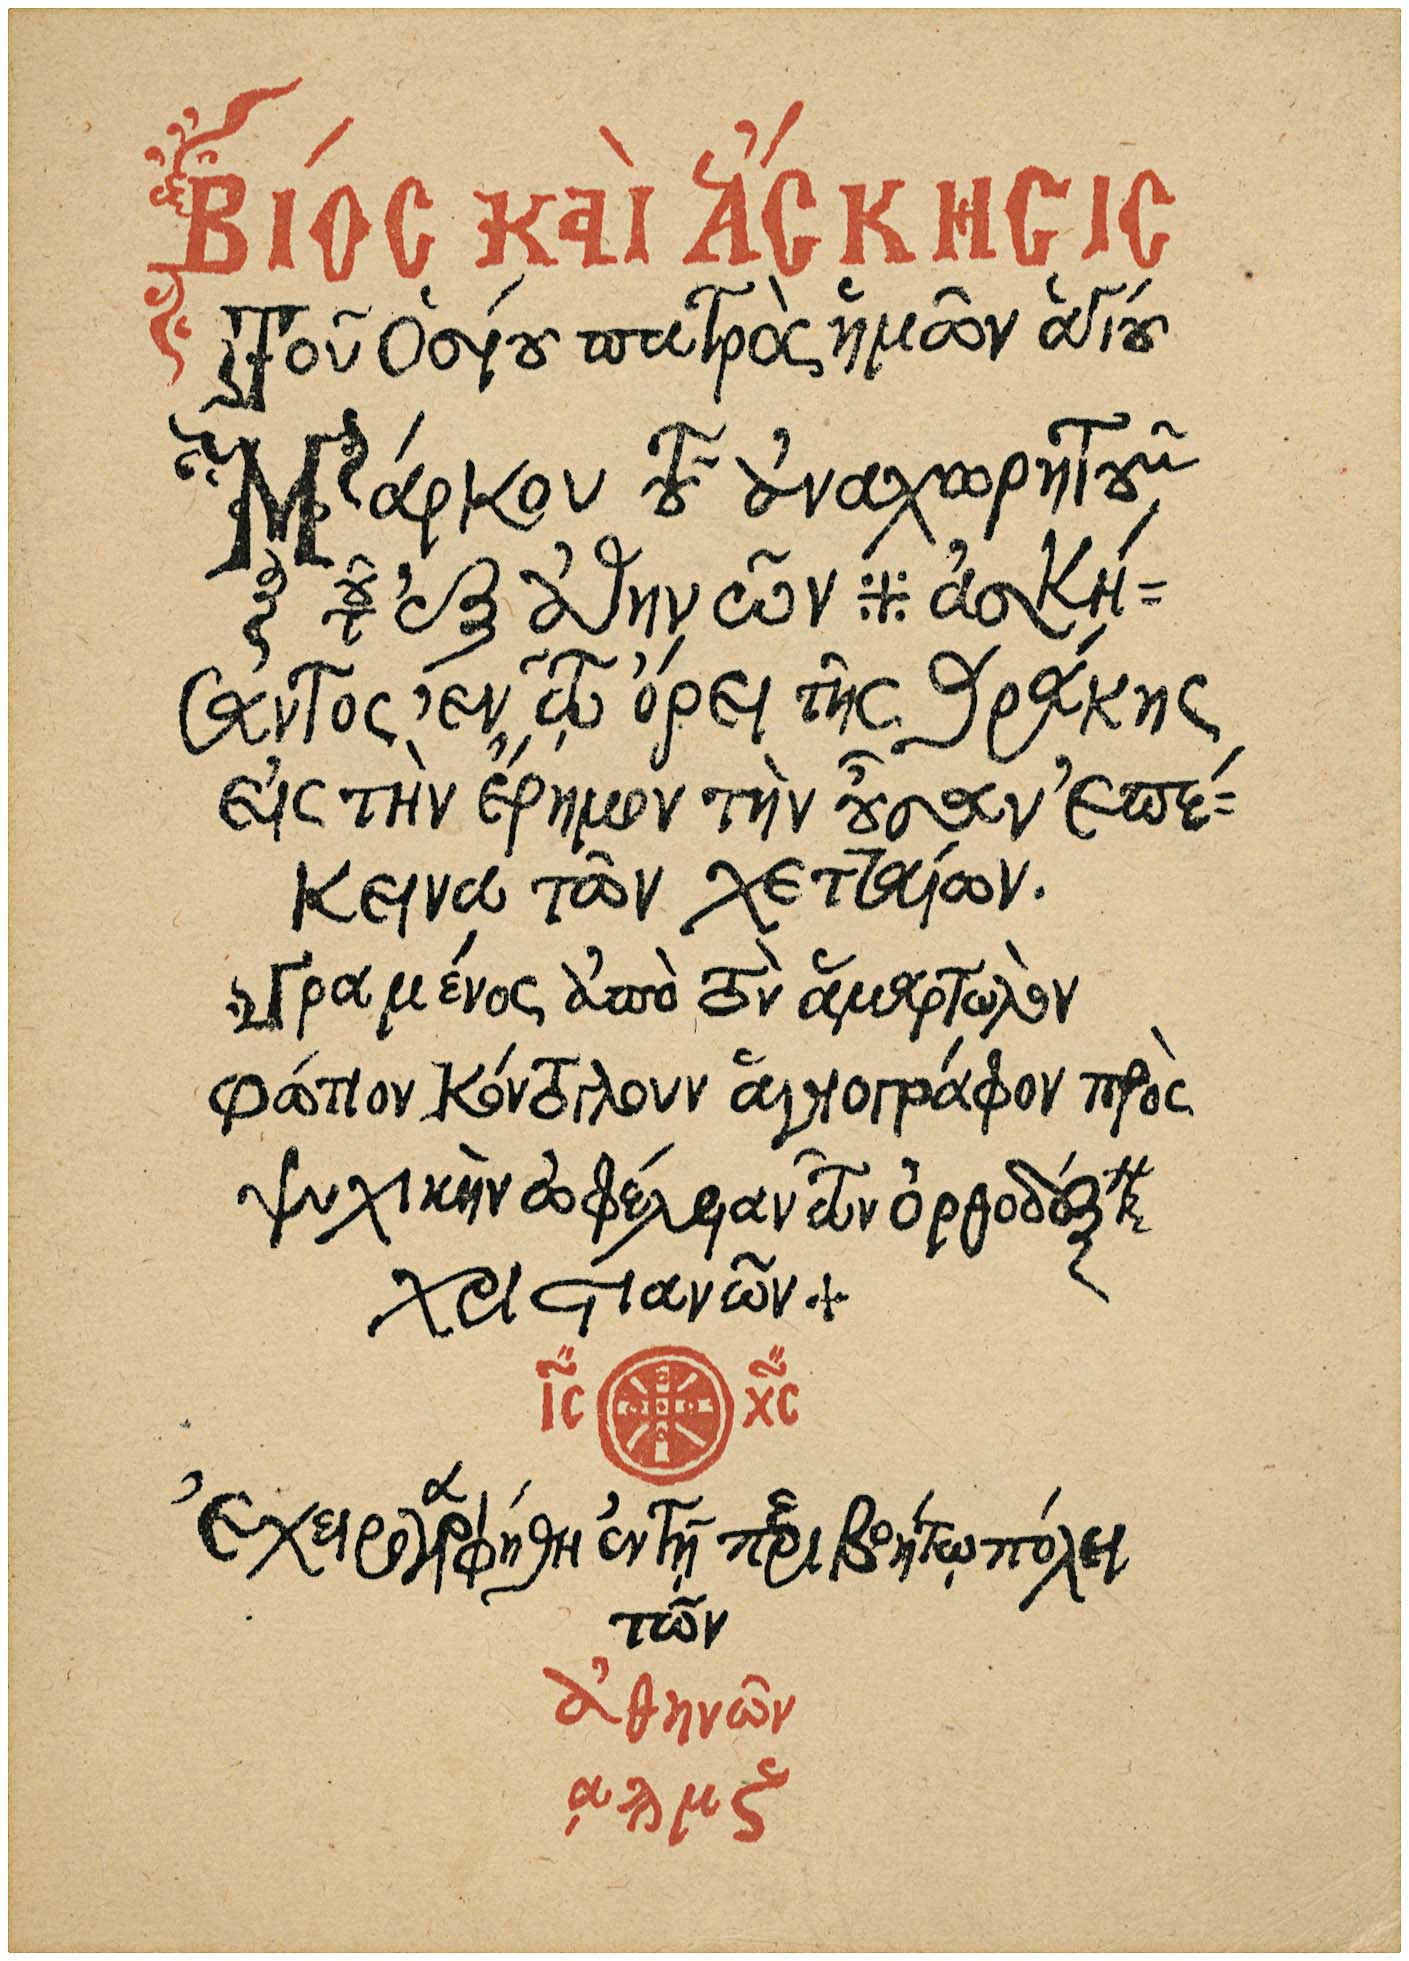 Βίος καὶ Ἄσκησις
Τοῦ Ὁσίου πατρὸς ἡμῶν ἁγίου
Μάρκου τοῦ ἀναχωρητοῦ
τοῦ ἐξ Ἀθηνῶν ※ ἀσκή=
σαντος ἐν τῷ ὄρει τῆς Θράκης
εἰς τὴν ἔρημον τὴν οὖσαν ἐπέ=
κεινα τῶν Χετταίων.
Γραμένος ἀπὸ τὸν ἁμαρτωλὸν
Φώτιον Κόντογλουν ἁγιογράφον πρὸς
ψυχικὴν ὠφέλειαν τῶν ὀρθοδόξων
χριστιανῶν +
ΙC ΧC
Ἐχειρογραφήθη ἐν τῇ περιβοήτῳ πόλει
τῶν
Ἀθηνῶν
͵αϡμζ